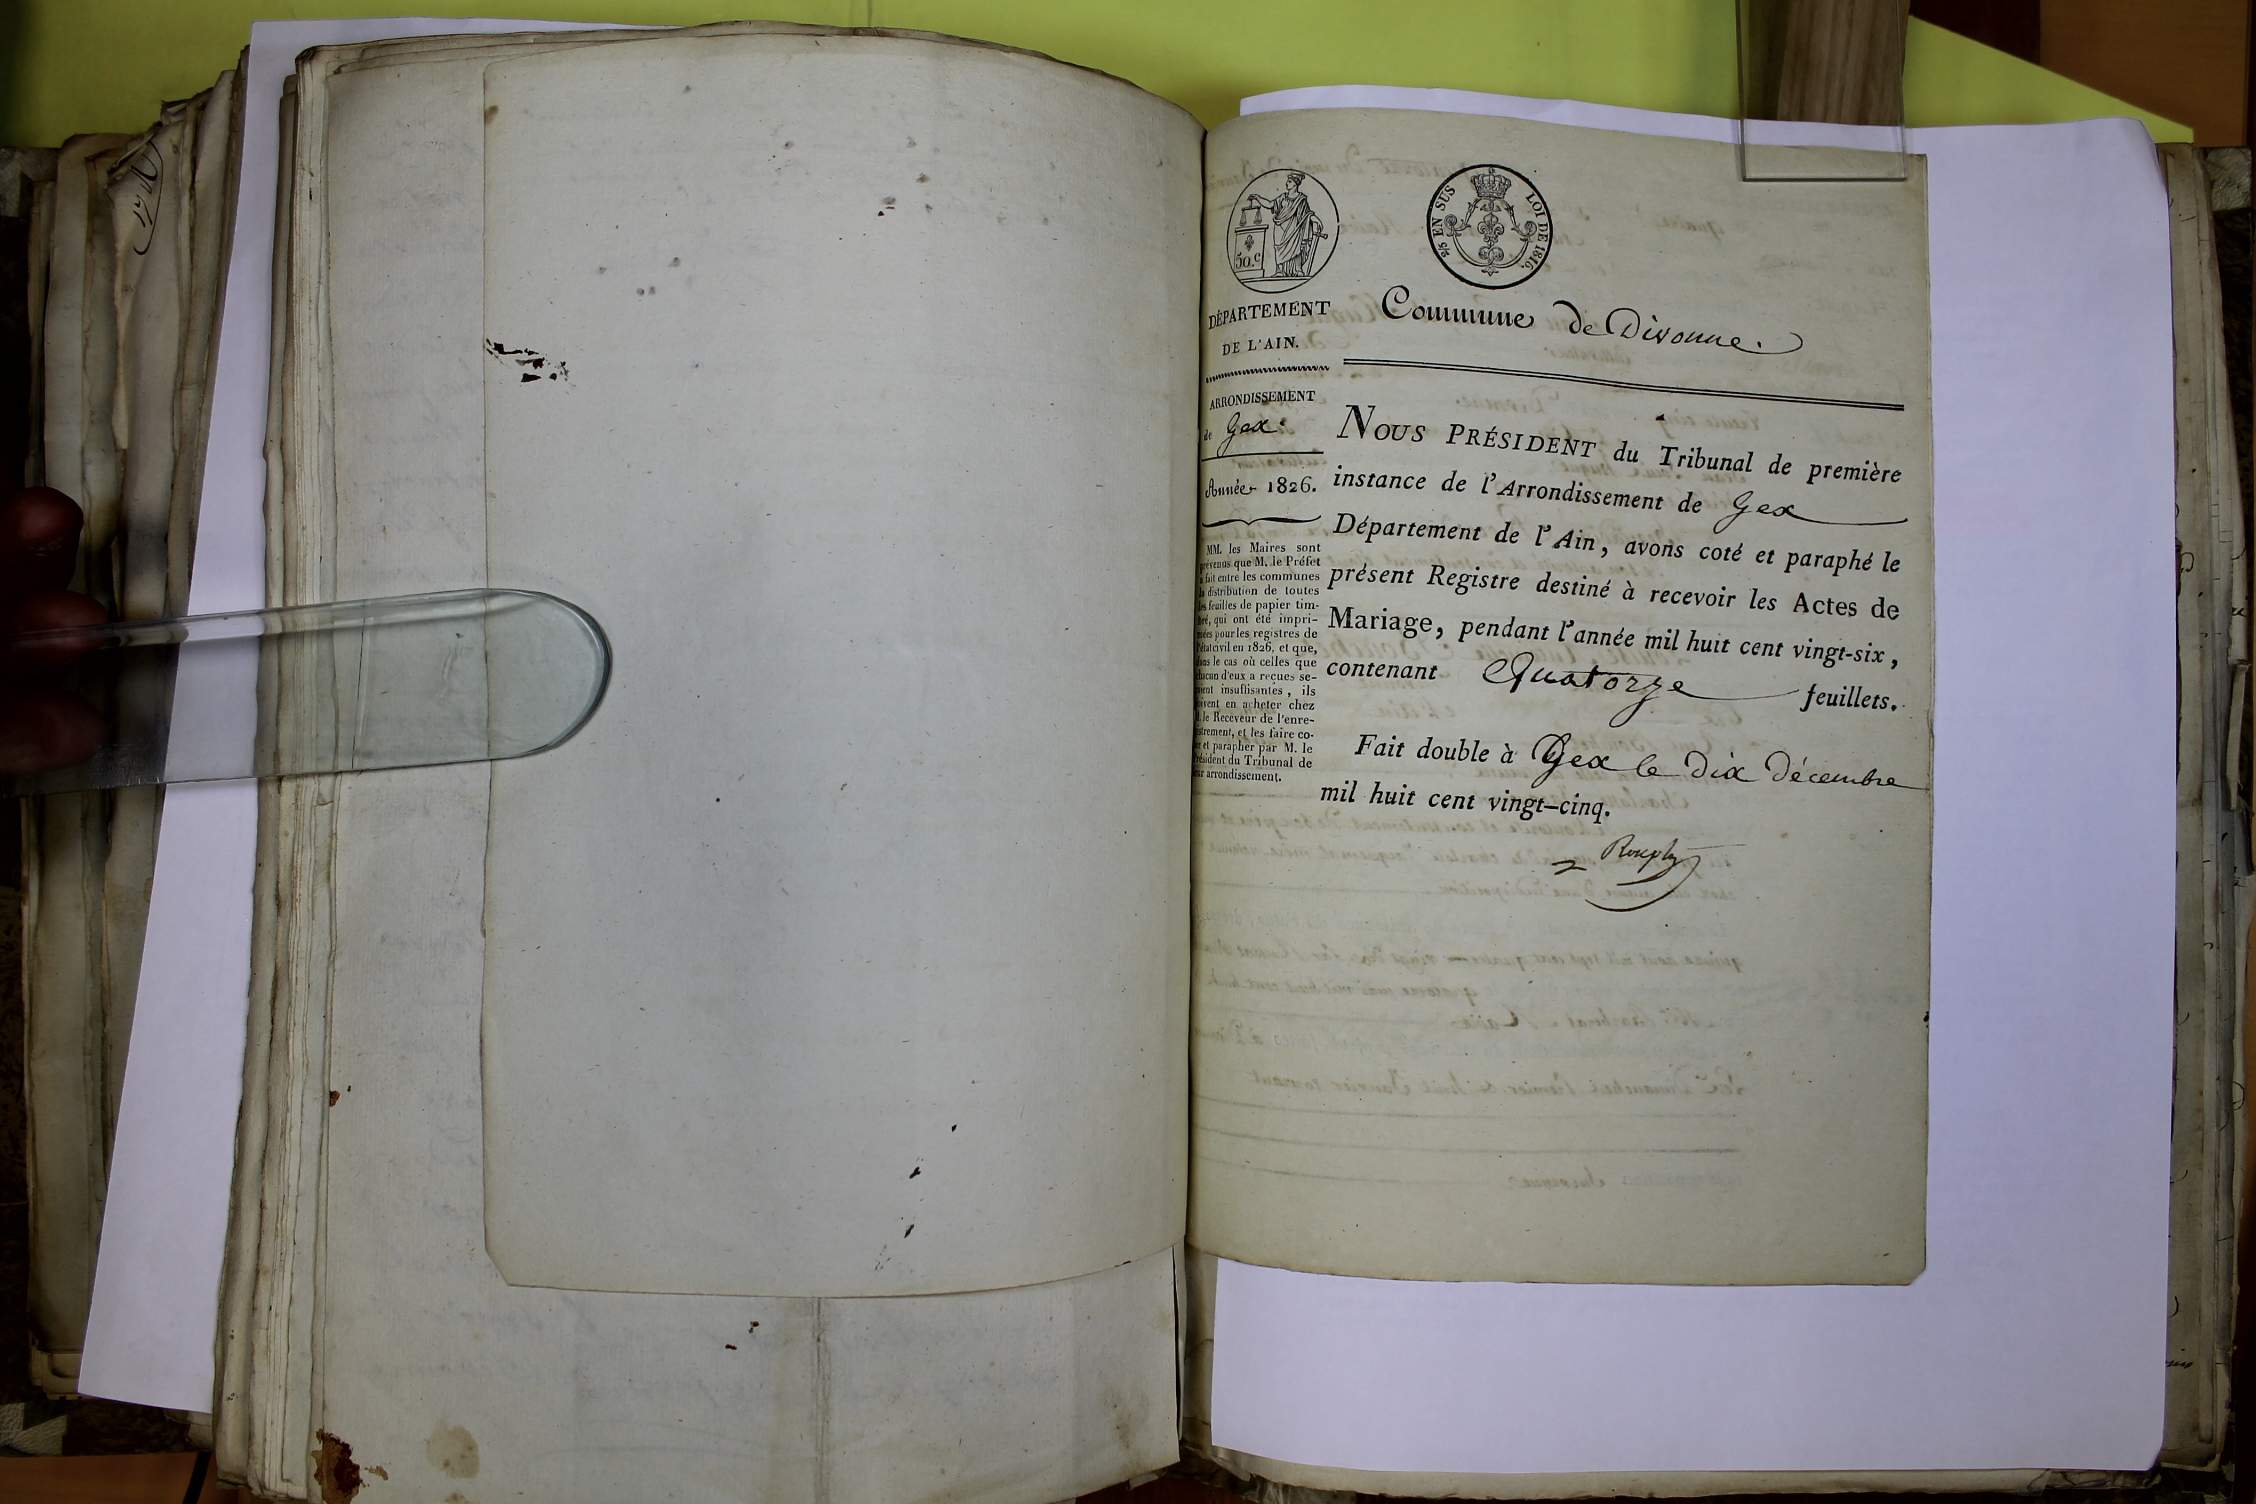 50.c
2/5 EN SUS LOI DE 1816.
DÉPARTEMENT
DE L'AIN.
ARRONDISSEMENT
de Gex.
Année 1826.
MM. les Maires sont
prévenus que M. le Préfet
a fait entre les communes
la distribution de toutes
les feuilles de papier tim-
bré, qui ont été impri-
mées pour les registres de
l'état civil en 1826, et que,
dans le cas où celles que
chacun d'eux a reçues se-
raient insuffisantes, ils
doivent en acheter chez
M. le Receveur de l'enre-
gistrement, et les faire co-
ter et parapher par M. le
Président du Tribunal de
leur arrondissement.
Commune de Divonne.
NOUS PRÉSIDENT du Tribunal de première
instance de l'Arrondissement de Gex
Département de l'Ain, avons coté et paraphé le
présent Registre destiné à recevoir les Actes de
Mariage, pendant l'année mil huit cent vingt-six,
contenant Quatorze feuillets.
Fait double à Gex le dix décembre
mil huit cent vingt-cinq.